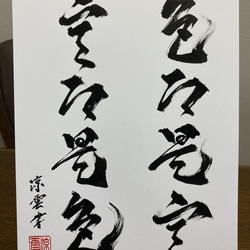 色即是空
空即是色
涼雲書